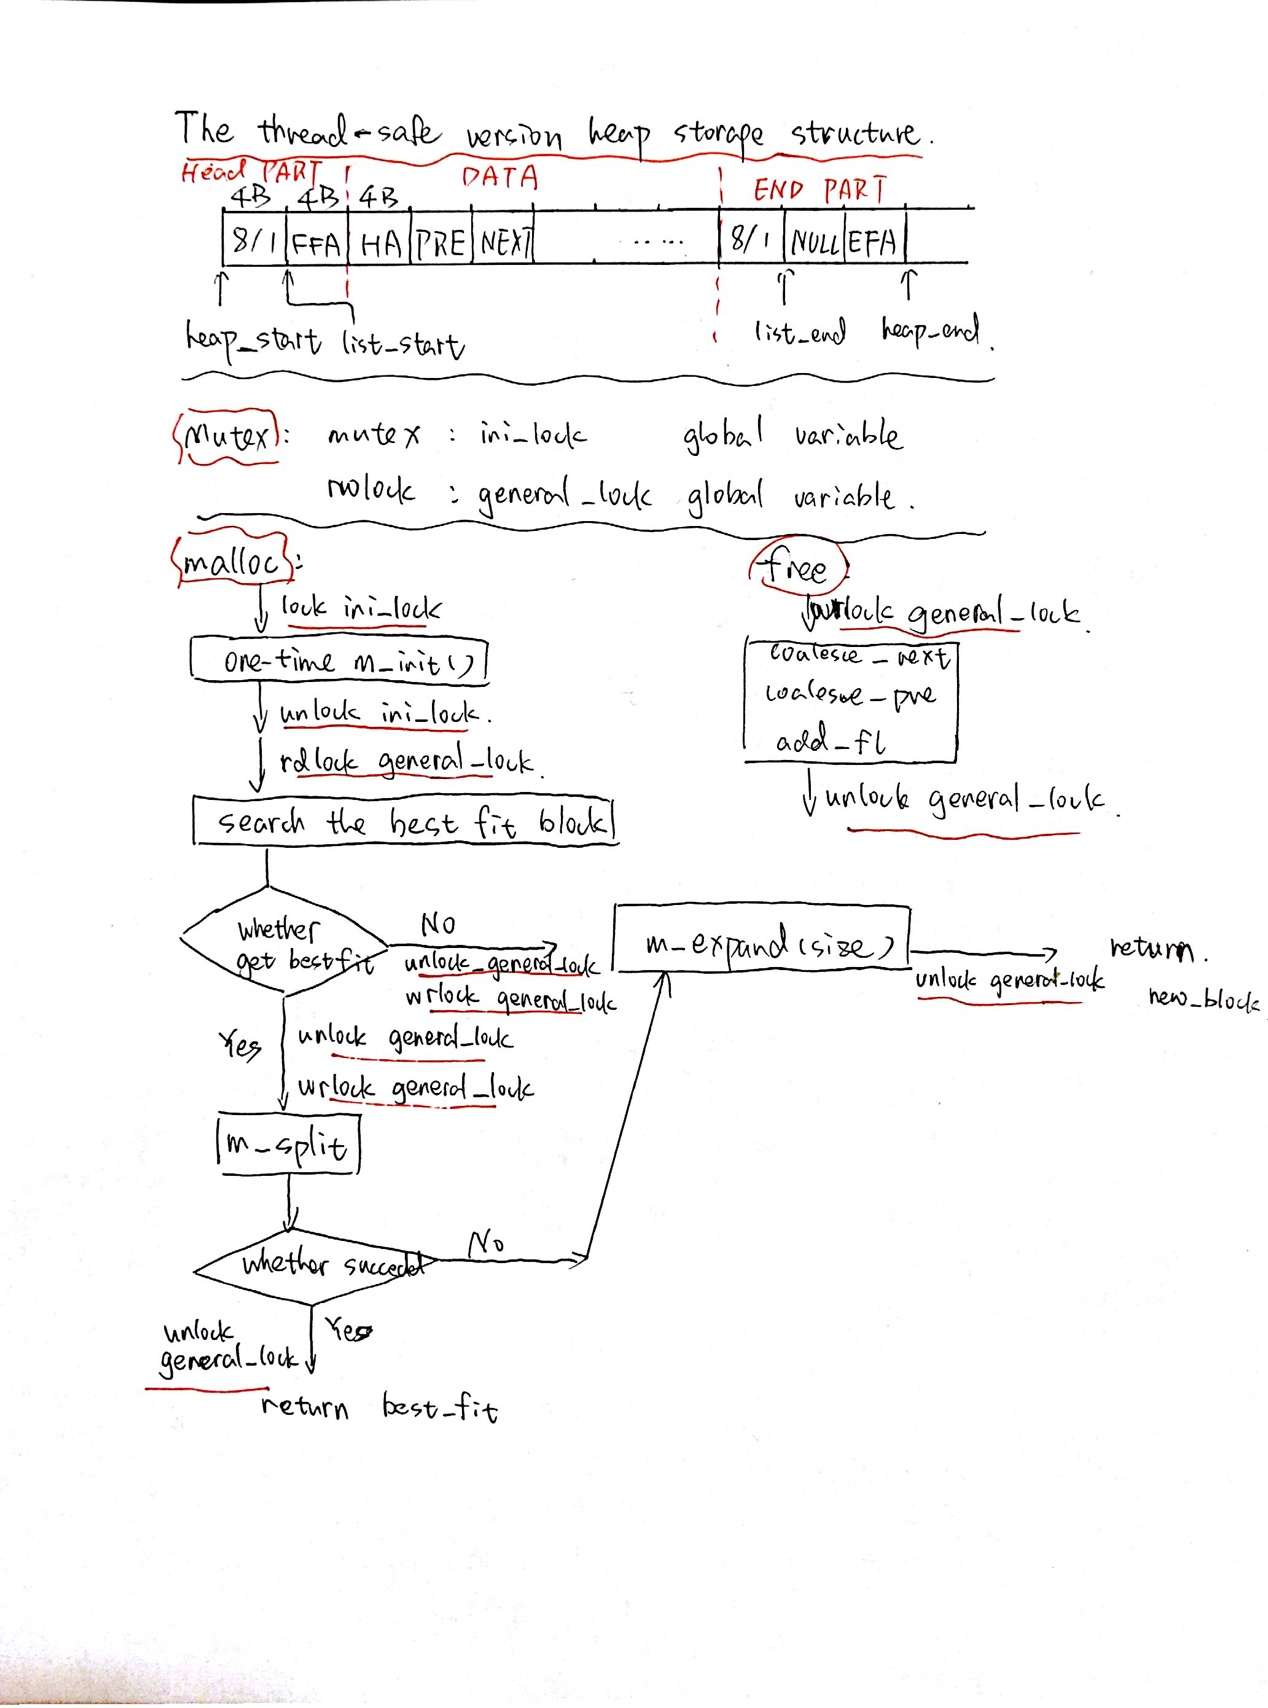 The thread-safe version heap storage structure.
Head PART DATA END PART
4B 4B 4B
8/1 FFA HA PRE NEXT ...... 8/1 NULL EFA
heap_start list_start list_end heap_end.
Mutex: mutex : ini_lock global variable
rwlock : general_lock global variable.
malloc:
lock ini_lock
one-time m_init()
unlock ini_lock.
rdlock general_lock.
search the best fit block
whether
get bestfit
No
unlock_general_lock
wrlock general_lock
m_expand(size)
unlock general_lock
return.
new_block
Yes
unlock general_lock
wrlock general_lock
m_split
whether succeed
No
Yes
unlock
general_lock
return best_fit
free:
wrlock general_lock.
coalesce_next
coalesce_pre
add_fl
unlock general_lock.